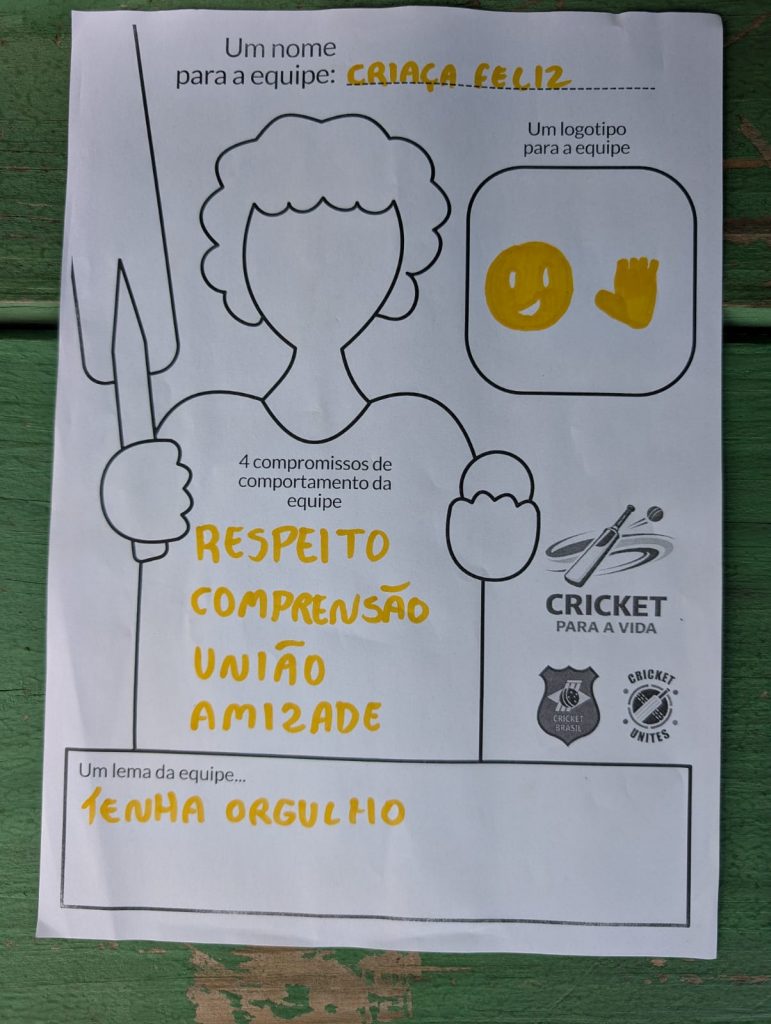 Um nome
para a equipe: CRIAÇA FELIZ
Um logotipo
para a equipe
4 compromissos de
comportamento da
equipe
RESPEITO
COMPRENSÃO
UNIÃO
AMIZADE
CRICKET
PARA A VIDA
CRICKET
BRASIL
CRICKET
UNITES
Um lema da equipe...
TENHA ORGULHO